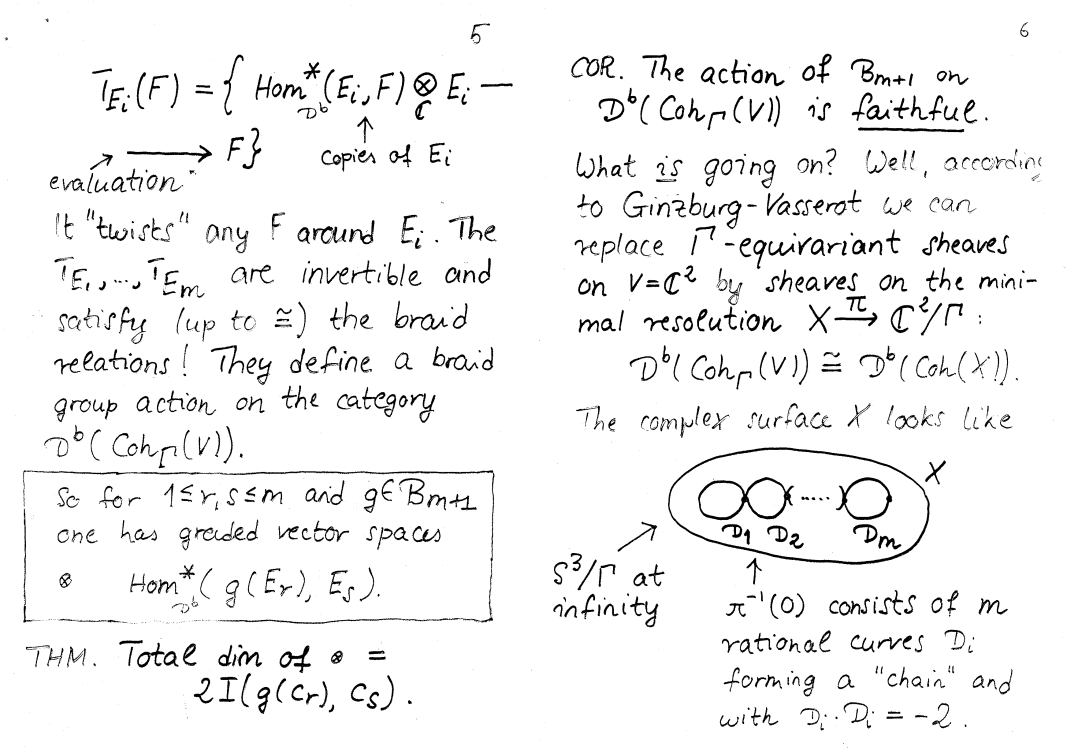 5
T_{E_i}(F) = { Hom^*_{D^b}(E_i, F) ⊗_ℂ E_i —
⟶ F}
copies of E_i
evaluation
It "twists" any F around E_i. The
T_{E_1}, ..., T_{E_m} are invertible and
satisfy (up to ≅) the braid
relations! They define a braid
group action on the category
D^b(Coh_Γ(V)).
So for 1≤r,s≤m and g∈B_{m+1}
one has graded vector spaces
⊗ Hom^*_{D^b}(g(E_r), E_s).
THM. Total dim of ⊗ =
2I(g(c_r), c_s).
6
COR. The action of B_{m+1} on
D^b(Coh_Γ(V)) is faithful.
What is going on? Well, according
to Ginzburg-Vasserot we can
replace Γ-equivariant sheaves
on V=ℂ² by sheaves on the mini-
mal resolution X →^π ℂ²/Γ :
D^b(Coh_Γ(V)) ≅ D^b(Coh(X)).
The complex surface X looks like
X
.....
D_1 D_2 D_m
S³/Γ at
infinity
π^{-1}(0) consists of m
rational curves D_i
forming a "chain" and
with D_i·D_i = -2.